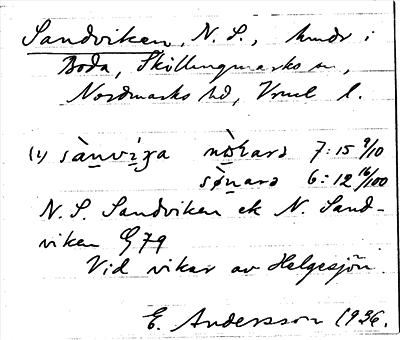 Sandviken, N. S., hmdr i
Boda, Skillingmarks sn,
Nordmarks hd, Vrml l.
(i) sànvíʒa nòḱarə 7:15 9/10
sǿnarə 6:12 16/100
N. S. Sandviken ek N. Sand-
viken G 79
Vid vikar av Helgesjön.
E. Andersson 1936.